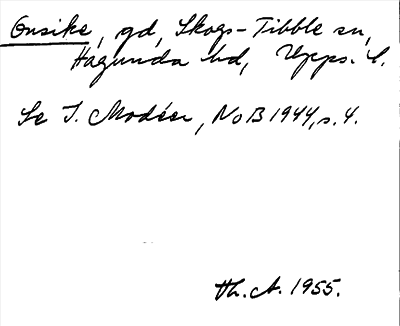 Onsike, gd, Skogs-Tibble sn,
Hagunda hd, Upps. l.
Se I. Modéer, NoB 1944, s. 4.
Th. A. 1955.